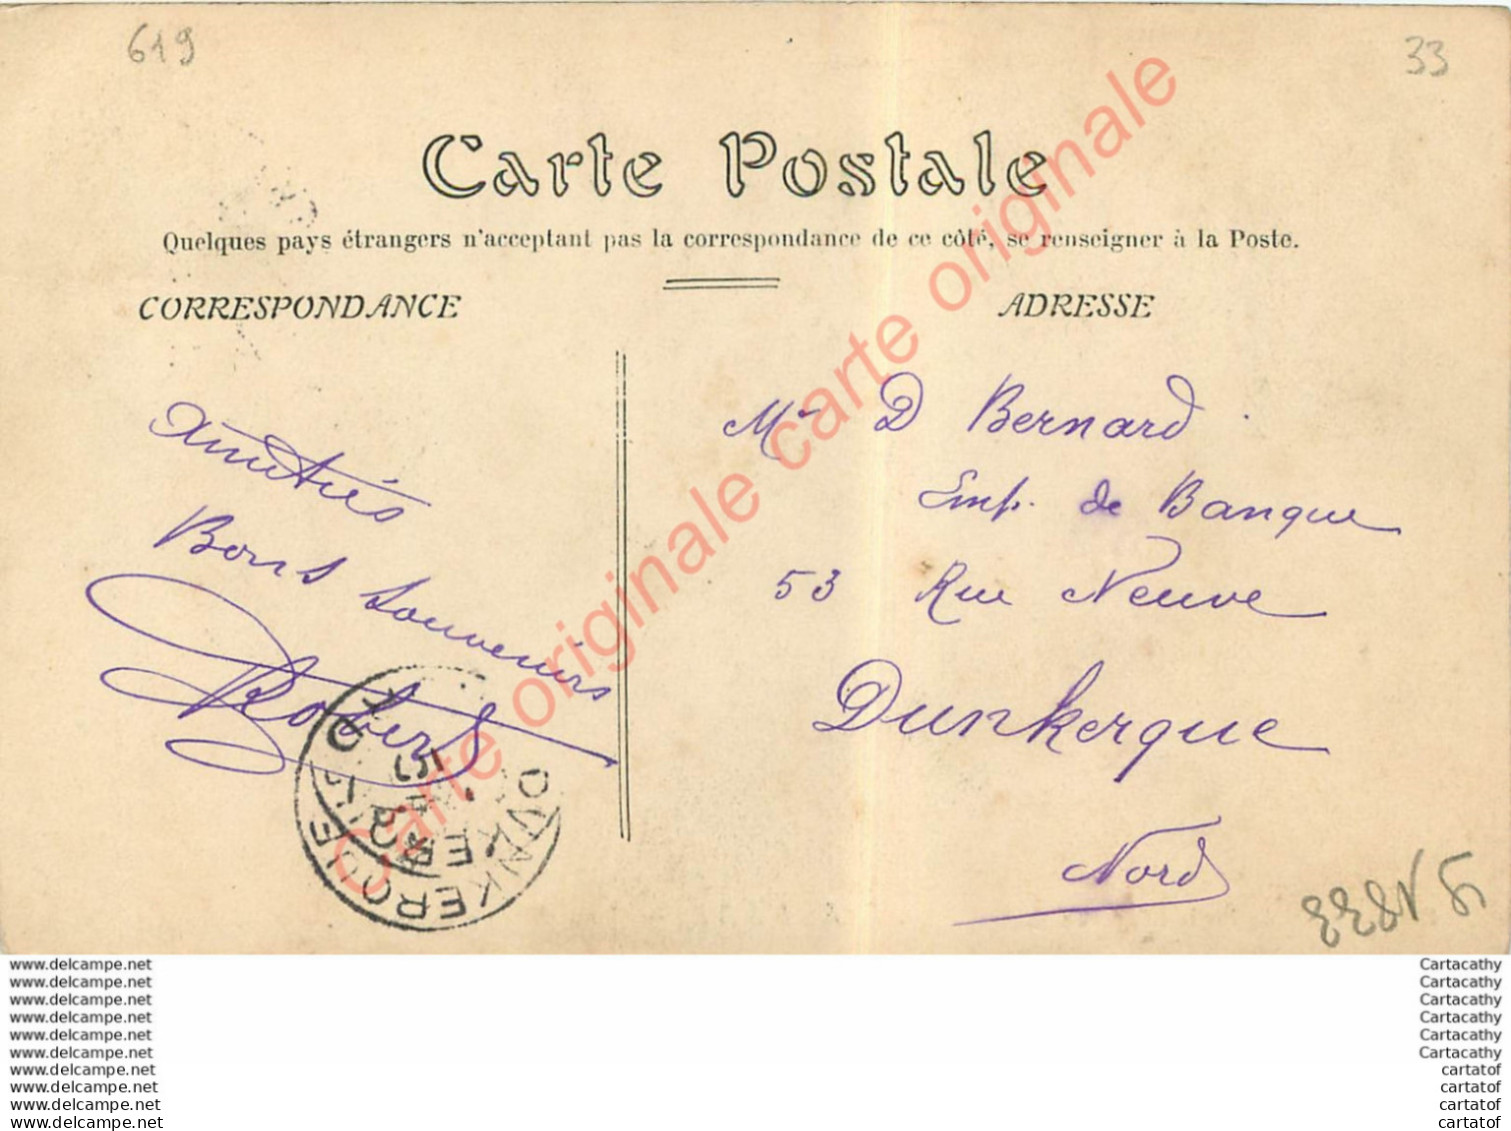 619
33
Carte Postale
Quelques pays étrangers n'acceptant pas la correspondance de ce côté, se renseigner à la Poste.
CORRESPONDANCE
ADRESSE
Amitiés
Bons souvenirs
Robert
Mr D Bernard
Emp. de Banque
53 Rue Neuve
Dunkerque
Nord
DUNKERQUE
Carte originale carte originale
www.delcampe.net
www.delcampe.net
www.delcampe.net
www.delcampe.net
www.delcampe.net
www.delcampe.net
www.delcampe.net
www.delcampe.net
www.delcampe.net
www.delcampe.net
Cartacathy
Cartacathy
Cartacathy
Cartacathy
Cartacathy
Cartacathy
cartatof
cartatof
cartatof
cartatof